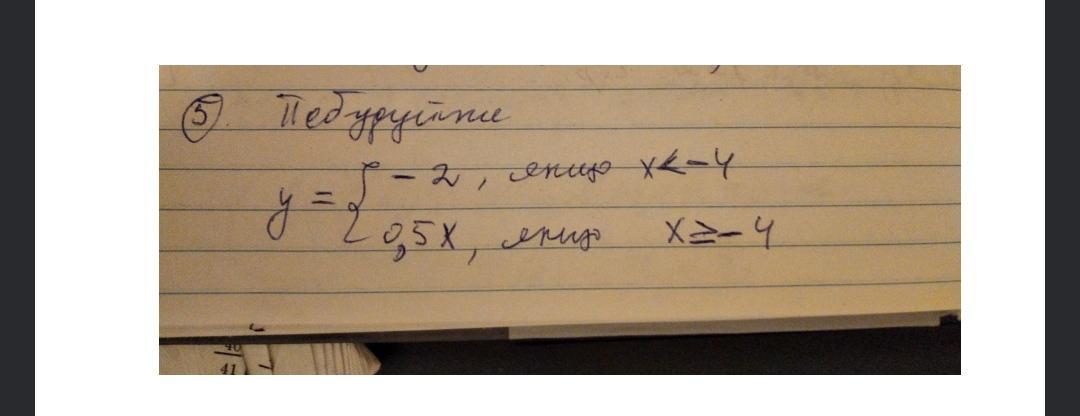 5. Побудуйте
y = { -2, якщо x<-4
0,5x, якщо x≥-4
40
41